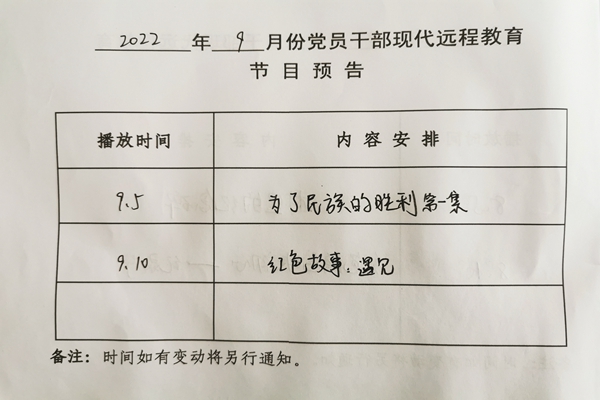 2022 年 9 月份党员干部现代远程教育
节目预告
播放时间 内容安排
9.5 为了民族的胜利第一集
9.10 红色故事:遇见
备注：时间如有变动将另行通知。